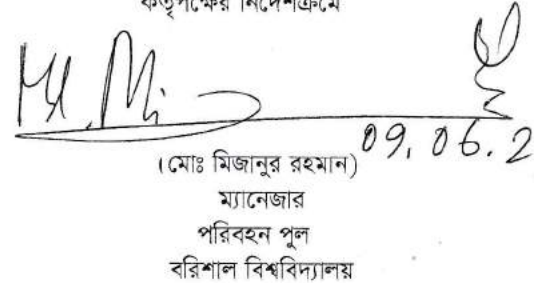 কর্তৃপক্ষের নির্দেশক্রমে
09.06.2
(মোঃ মিজানুর রহমান)
ম্যানেজার
পরিবহন পুল
বরিশাল বিশ্ববিদ্যালয়